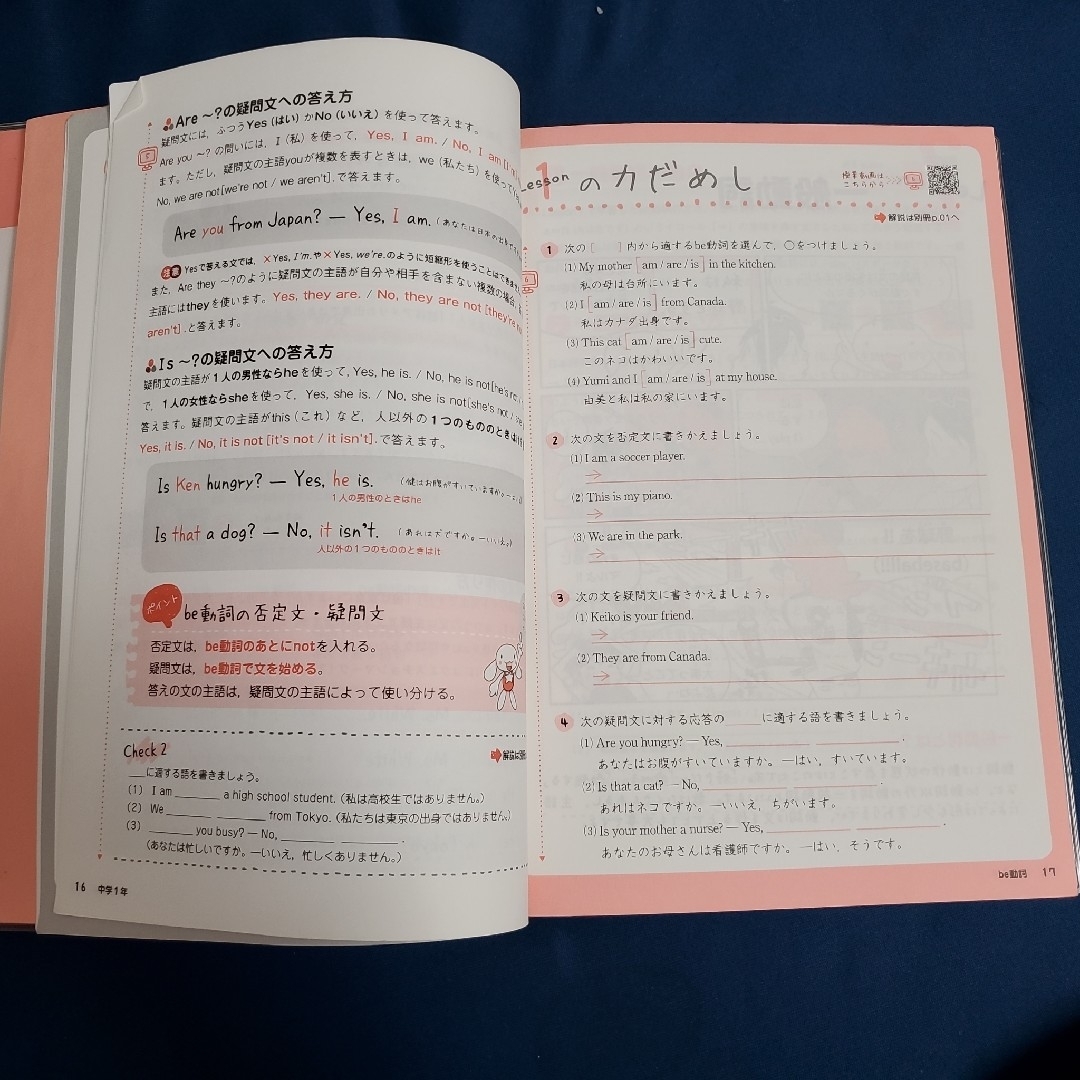 Are ～?の疑問文への答え方
疑問文には，ふつうYes (はい) かNo (いいえ) を使って答えます。
Are you ～? の問いには，I (私) を使って，Yes, I am. / No, I am
ます。ただし，疑問文の主語youが複数を表すときは，we (私たち) を使って
No, we are not[we're not / we aren't].で答えます。
Are you from Japan? — Yes, I am. (あなたは日本の出身ですか
注意 Yesで答える文では，×Yes, I'm.や×Yes, we're.のように短縮形を使うことはできま
また，Are they ～?のように疑問文の主語が自分や相手を含まない複数の場合，
主語にはtheyを使います。Yes, they are. / No, they are not [they're
aren't].と答えます。
Is ～?の疑問文への答え方
疑問文の主語が1人の男性ならheを使って，Yes, he is. / No, he is not[he's
で，1人の女性ならsheを使って，Yes, she is. / No, she is not[she's not /
答えます。疑問文の主語がthis（これ）など，人以外の1つのもののときは
Yes, it is. / No, it is not [it's not / it isn't].で答えます。
Is Ken hungry? — Yes, he is. (健はお腹がすいていますか。—はい
1人の男性のときはhe
Is that a dog? — No, it isn't. (あれは犬ですか。—いいえ。)
人以外の1つのもののときはit
ポイント be動詞の否定文・疑問文
否定文は，be動詞のあとにnotを入れる。
疑問文は，be動詞で文を始める。
答えの文の主語は，疑問文の主語によって使い分ける。
Check 2 解説は別
___に適する語を書きましょう。
(1) I am ______ a high school student. (私は高校生ではありません。)
(2) We ______ ______ from Tokyo. (私たちは東京の出身ではありません。)
(3) ______ you busy? — No, ______ ______ .
(あなたは忙しいですか。—いいえ，忙しくありません。)
16 中学1年
Lesson 1 の力だめし
授業動画は
こちらから
解説は別冊p.01へ
1 次の［ ］内から適するbe動詞を選んで，○をつけましょう。
(1) My mother [ am / are / is ] in the kitchen.
私の母は台所にいます。
(2) I [ am / are / is ] from Canada.
私はカナダ出身です。
(3) This cat [ am / are / is ] cute.
このネコはかわいいです。
(4) Yumi and I [ am / are / is ] at my house.
由美と私は私の家にいます。
2 次の文を否定文に書きかえましょう。
(1) I am a soccer player.
(2) This is my piano.
(3) We are in the park.
3 次の文を疑問文に書きかえましょう。
(1) Keiko is your friend.
(2) They are from Canada.
4 次の疑問文に対する応答の____に適する語を書きましょう。
(1) Are you hungry? — Yes, ______ ______ .
あなたはお腹がすいていますか。—はい，すいています。
(2) Is that a cat? — No, ______
あれはネコですか。—いいえ，ちがいます。
(3) Is your mother a nurse? — Yes, ______ ______ .
あなたのお母さんは看護師ですか。—はい，そうです。
be動詞 17